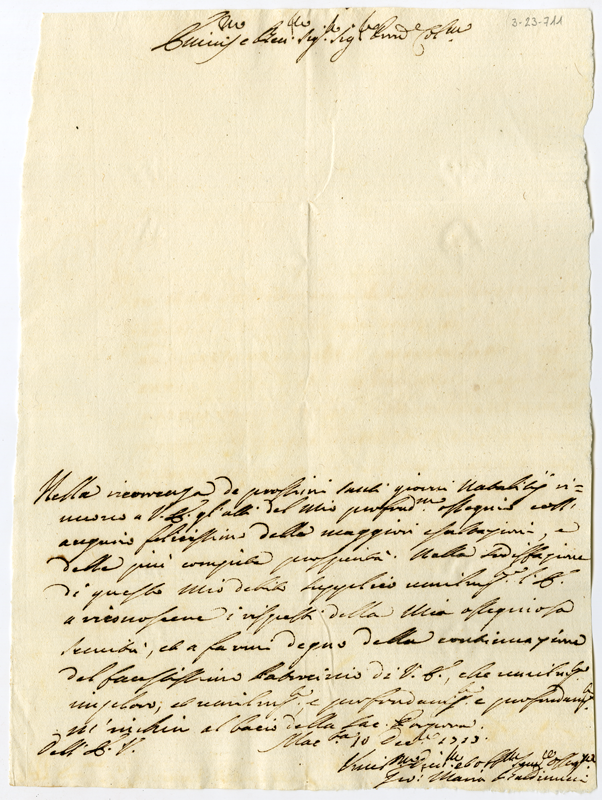 3-23-711
Emin: e Rev: Sig: Sig: Prnẽ Col:
Nella ricorrenza de prossimi santi giorni Natalitij ri-
nuovo a V. E. gl'atti del mio profond:mo ossequio coll'
augurio felicissimo delle maggiori esaltazioni, e
delle più compite prosperità. Nella
di questo mio debito supplico umilm: l'E.
a riconoscere i rispetti della mia ossequiosa
servitù, et a farmi degno della continuazione
del Patrocinio di V. E., che umilm:
imploro, et umilm: e profondam: e profondam:
m'inchino al bacio della Sac: Porpora.
Dell'E. V. Mac:ta 10 Dec: 1713.
Umil:mo
Gio: Maria